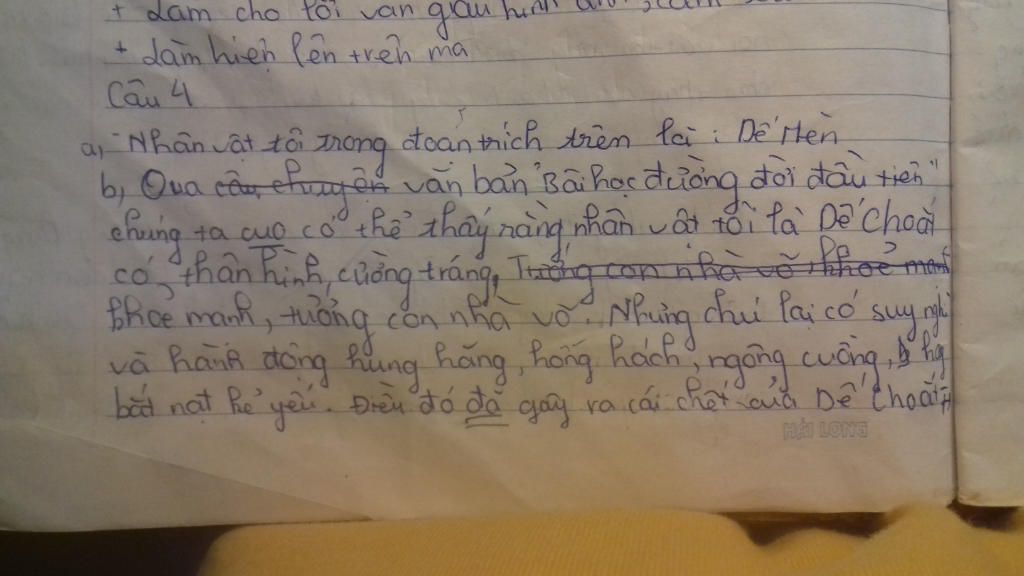 + làm cho lời văn giàu hình
+ làm hiện lên trên ma
Câu 4
a, Nhân vật tôi trong đoán trích trên là : Dế Mèn
b, Qua câu chuyện văn bản "Bài học đường đời đầu tiên"
chúng ta cuo có thể thấy rằng, nhân vật tôi là Dế Choắt
có thân hình, cường tráng, Tướng con nhà võ, khoẻ manh
khoẻ manh, tướng con nhà võ. Nhưng chú lại có suy nghĩ
và hành động hung hăng, hống hách, ngông cuồng, hay
bắt nạt kẻ yếu. Điều đó đã gây ra cái chết của Dế Choắt
HẢI LONG